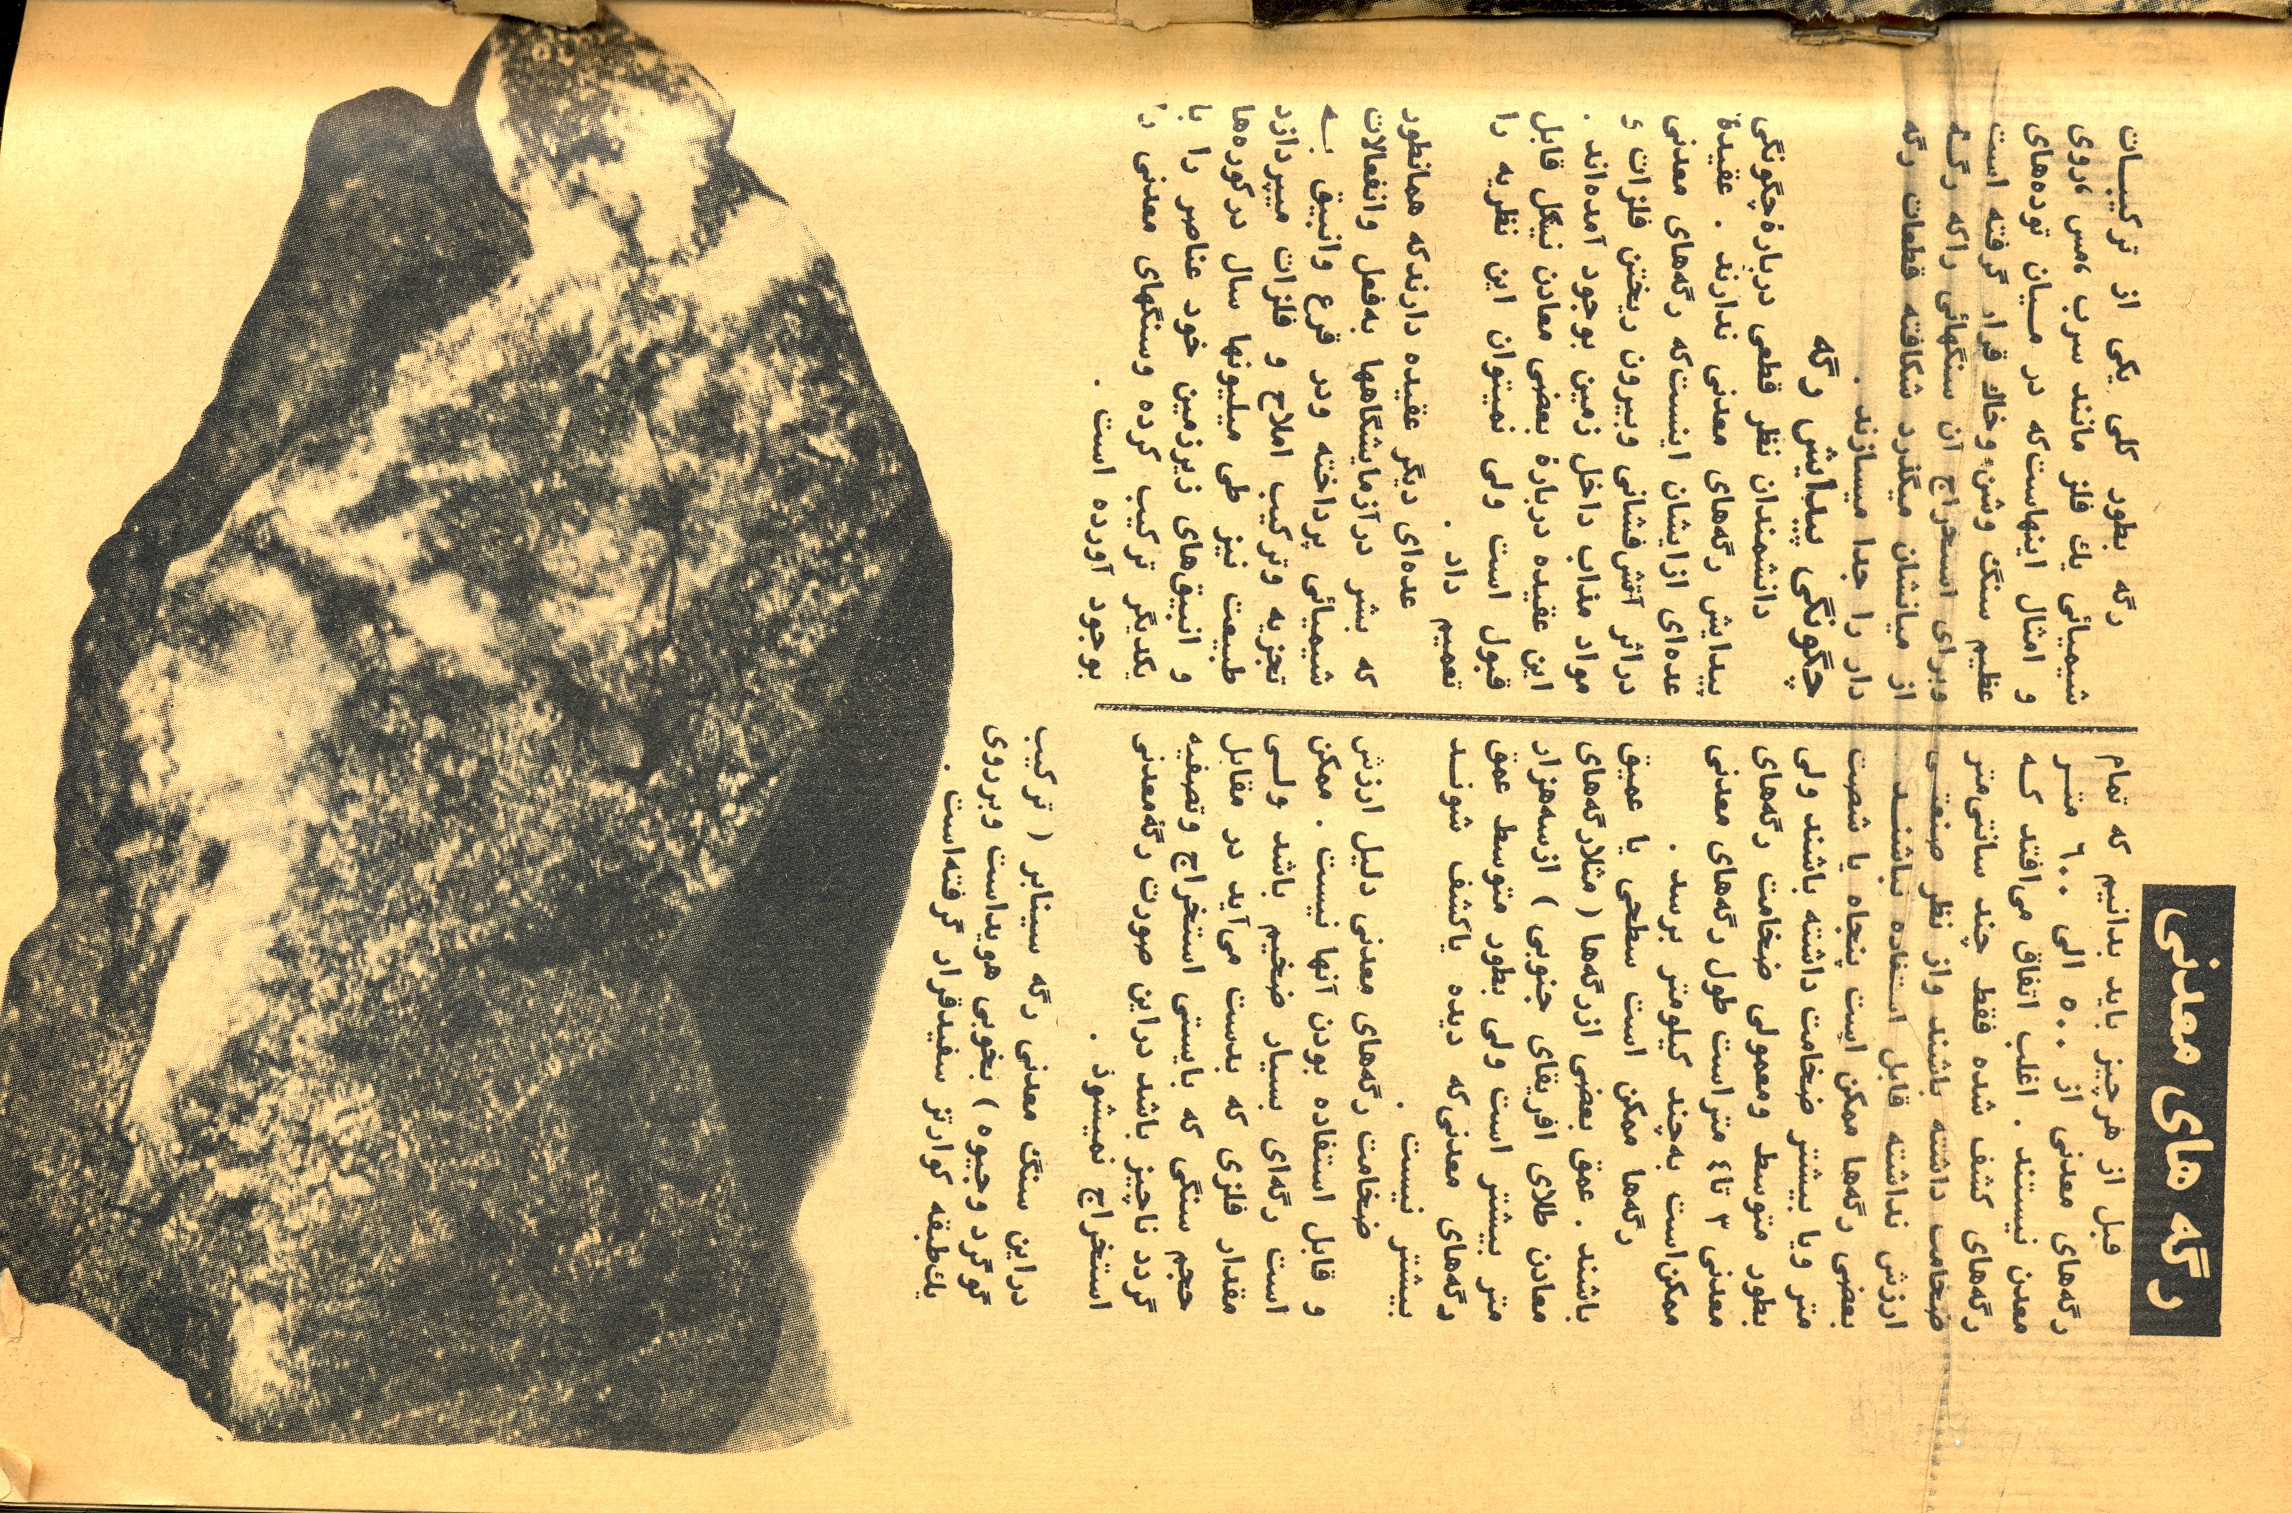 رگه های معدنی
قبل از هرچیز باید بدانیم که تمام
رگه‌های معدنی از ۵۰۰ الی ۶۰۰ متر
معدن نیستند . اغلب اتفاق می‌افتد که
رگه‌های کشف شده فقط چند سانتی‌متر
ضخامت داشته باشند واز نظر صنعتی
ارزش نداشته قابل استفاده نباشند
بعضی رگه‌ها ممکن است پنجاه یا شصت
متر ویا بیشتر ضخامت داشته باشند ولی
بطور متوسط ومعمولی ضخامت رگه‌های
معدنی ۳ تا۴ متراست طول رگه‌های معدنی
ممکن‌است به‌چند کیلومتر برسد .
رگه‌ها ممکن است سطحی یا عمیق
باشند . عمق بعضی ازرگه‌ها ( مثلارگه‌های
معادن طلای افریقای جنوبی ) ازسه‌هزار
متر بیشتر است ولی بطور متوسط عمق
رگه‌های معدنی‌که دیده یاکشف شوند
بیشتر نیست .
ضخامت رگه‌های معدنی دلیل ارزش
و قابل استفاده بودن آنها نیست . ممکن
است رگه‌ای بسیار ضخیم باشد ولی
مقدار فلزی که بدست می‌آید در مقابل
حجم سنگی که بایستی استخراج وتصفیه
گردد ناچیز باشد دراین صورت رگه‌معدنی
استخراج نمیشود .
دراین سنگ معدنی رگه سینابر ( ترکیب
گوگرد وجیوه ) بخوبی هویداست وبرروی
یك‌طبقه کوارتز سفیدقرار گرفته‌است .
رگه بطور کلی یکی از ترکیبات
شیمیائی یك فلز مانند سرب ،مس ،روی
و امثال اینهاست‌که در میان توده‌های
عظیم سنگ وشن وخاك قرار گرفته است
وبرای استخراج آن سنگهائی راکه رگه
از میانشان میگذرد شکافته قطعات رگه
دار را جدا میسازند .
چگونگی پیدایش رگه
دانشمندان نظر قطعی دربارهٔچگونگی
پیدایش رگه‌های معدنی ندارند . عقیدهٔ
عده‌ای ازایشان اینست‌که رگه‌های معدنی
دراثر آتش‌فشانی وبیرون ریختن فلزات و
مواد مذاب داخل زمین بوجود آمده‌اند .
این عقیده دربارهٔ بعضی معادن نیکل قابل
قبول است ولی نمیتوان این نظریه را
تعمیم داد .
عده‌ای دیگر عقیده دارندکه همانطور
که بشر درآزمایشگاهها به‌فعل وانفعالات
شیمیائی پرداخته ودر قرع وانبیق به
تجزیه وترکیب املاح و فلزات میپردازد
طبیعت نیز طی میلیونها سال درکوره‌ها
و انبیق‌های زیرزمین خود عناصر را با
یکدیگر ترکیب کرده وسنگهای معدنی را
بوجود آورده است .